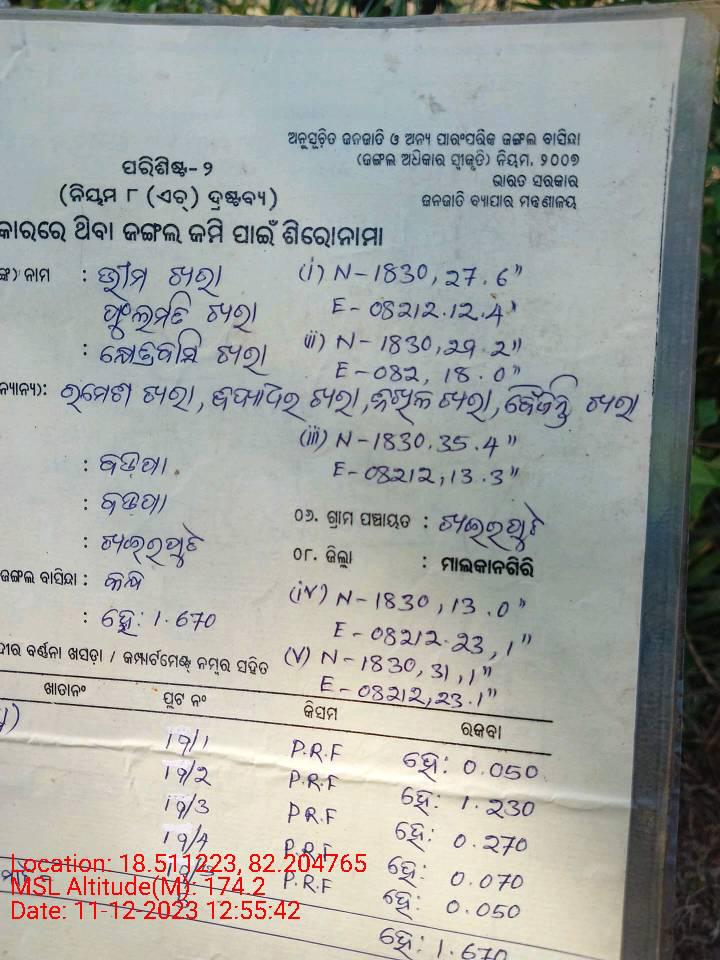 ଅନୁସୂଚିତ ଜନଜାତି ଓ ଅନ୍ୟ ପାରଂପରିକ ଜଙ୍ଗଲ ବାସିନ୍ଦା
(ଜଙ୍ଗଲ ଅଧିକାର ସ୍ୱୀକୃତି) ନିୟମ, ୨୦୦୭
ଭାରତ ସରକାର
ଜନଜାତି ବ୍ୟାପାର ମନ୍ତ୍ରଣାଳୟ
ପରିଶିଷ୍ଟ-୨
(ନିୟମ ୮ (ଏଚ୍) ଦ୍ରଷ୍ଟବ୍ୟ)
କାରରେ ଥିବା ଜଙ୍ଗଲ ଜମି ପାଇଁ ଶିରୋନାମା
ନାମ : ଭୀମ ଖରା (i) N-1830, 27.6"
ଫୁଲମତି ଖରା E-08212.12.4"
: ଖରା (ii) N-1830, 29.2"
E-082, 18.0"
ନ୍ୟାନ୍ୟ): ରମେଶ ଖରା, ଖରା, ଖରା, ଖରା
(iii) N-1830.35.4"
: ବଡ଼ପଦା E-08212, 13.3"
: ବଡପଦା
୦୬. ଗ୍ରାମ ପଞ୍ଚାୟତ : ଖଇରପୁଟ
: ଖଇରପୁଟ
୦୮. ଜିଲ୍ଲା : ମାଲକାନଗିରି
ଜଙ୍ଗଲ ବାସିନ୍ଦା : (iv) N-1830, 13.0"
: ହେ: 1.670 E-08212.23, 1"
ବର୍ଣ୍ଣନା ଖସଡ଼ା / କମ୍ପାର୍ଟମେଣ୍ଟ ନମ୍ବର ସହିତ (v) N-1830, 31, 1"
E-08212, 23.1"
ଖାତାନଂ ପ୍ଲଟ ନଂ କିସମ ରକବା
19/1 P.R.F ହେ: 0.050
19/2 P.R.F ହେ: 1.230
19/3 P.R.F ହେ: 0.270
19/4 P.R.F ହେ: 0.070
P.R.F ହେ: 0.050
ହେ: 1.670
Location: 18.511223, 82.204765
MSL Altitude(M): 174.2
Date: 11-12-2023 12:55:42